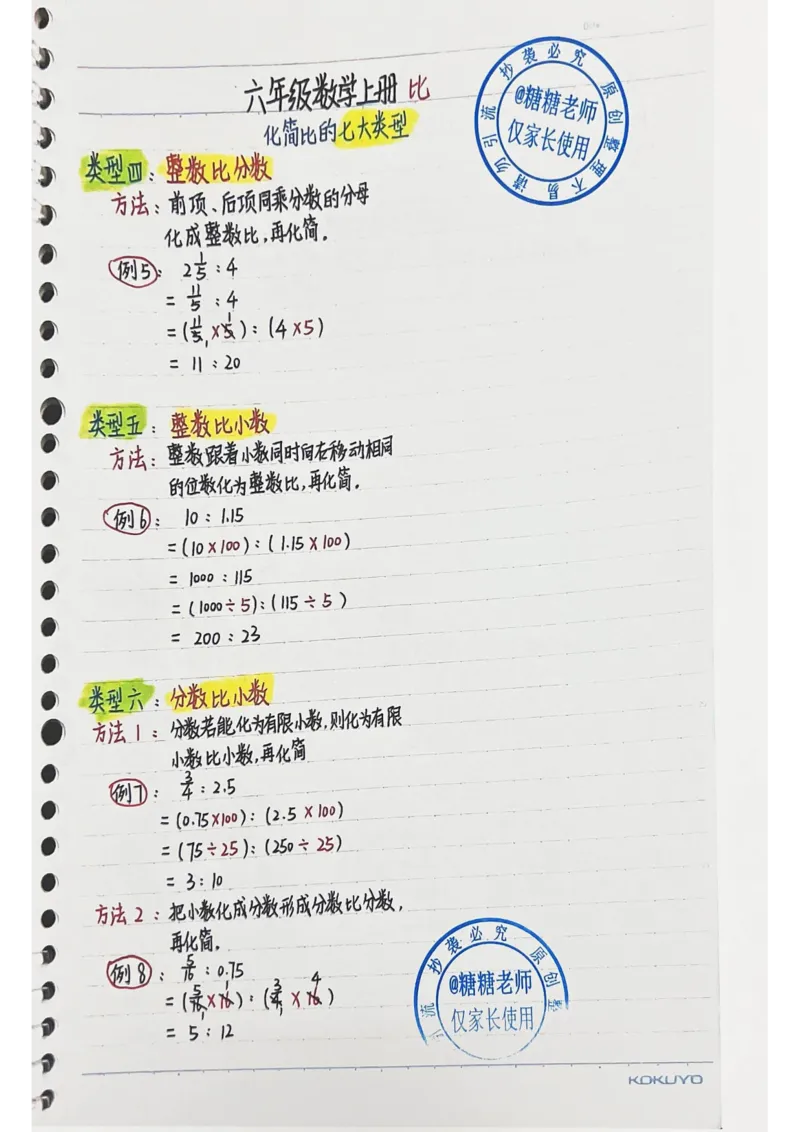 六年级数学上册 比
化简比的七大类型
抄袭必究 原创整理 不易 请勿引流
@糖糖老师
仅家长使用
类型四：整数比分数
方法：前项、后项同乘分数的分母
化成整数比,再化简。
例5： 2 1/5 : 4
= 11/5 : 4
= (11/5 × 5) : (4 × 5)
= 11 : 20
类型五：整数比小数
方法：整数跟着小数同时向右移动相同
的位数化为整数比,再化简。
例6： 10 : 1.15
= (10 × 100) : (1.15 × 100)
= 1000 : 115
= (1000 ÷ 5) : (115 ÷ 5)
= 200 : 23
类型六：分数比小数
方法1：分数若能化为有限小数,则化为有限
小数比小数,再化简
例7： 3/4 : 2.5
= (0.75×100) : (2.5 × 100)
= (75÷25) : (250 ÷ 25)
= 3 : 10
方法2：把小数化成分数形成分数比分数,
再化简。
例8： 5/16 : 0.75
= (5/16 × 16) : (3/4 × 16)
= 5 : 12
抄袭必究 原创整
引流
@糖糖老师
仅家长使用
KOKUYO